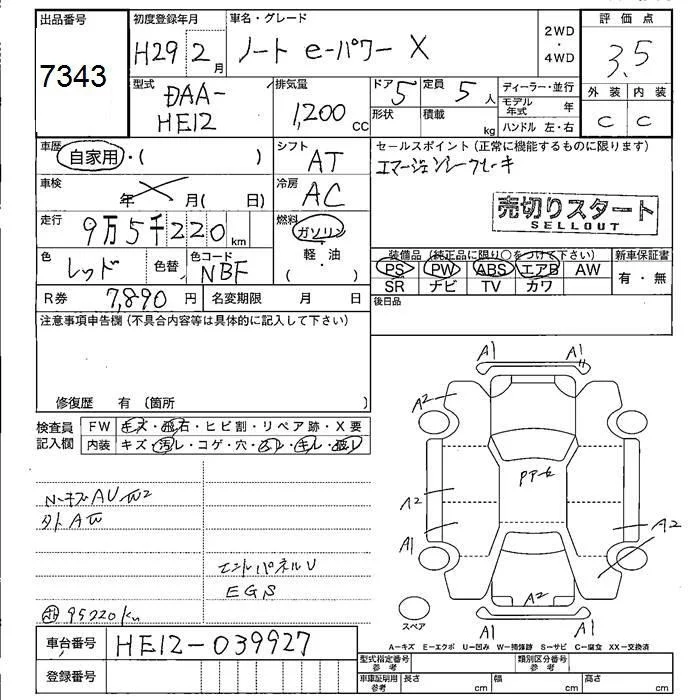 出品番号
7343
初度登録年月
H29 2月
車名・グレード
ノート e-パワー X
2WD・4WD
評価点
3.5
外装 内装
C C
型式
DAA-HE12
排気量
1,200 cc
ドア 5
形状
定員 5 人
積載 kg
ディーラー・並行
モデル年式 年
ハンドル 左・右
車歴
自家用・( )
シフト
AT
セールスポイント (正常に機能するものに限ります)
エマージェンシーブレーキ
車検
年 月( 日)
冷房
AC
売切りスタート
SELLOUT
走行
9万5千220km
燃料
ガソリン
軽・油
( )
色
レッド
色替
色コード
NBF
装備品 (純正品に限り○をつけて下さい)
新車保証書
PS PW ABS エアB AW
SR ナビ TV カワ
有・無
R券 7,890円
名変期限 月 日
後日品
注意事項申告欄(不具合内容等は具体的に記入して下さい)
修復歴 有 (箇所
検査員記入欄
FW キズ・飛石・ヒビ割・リペア跡・X要
内装 キズ・汚レ・コゲ・穴
A1 A1
A2
PPセ
A2 A2
A1
A2
A1 A1
外A
パネルU
EGS
95220km
スペア
A－キズ E－エクボ U－凹み W－補修跡 S－サビ C－腐食 XX－交換済
車台番号 HE12-039927
登録番号
型式指定番号 参考
類別区分番号 参考
車庫証明用 参考
長さ cm 幅 cm 高さ cm